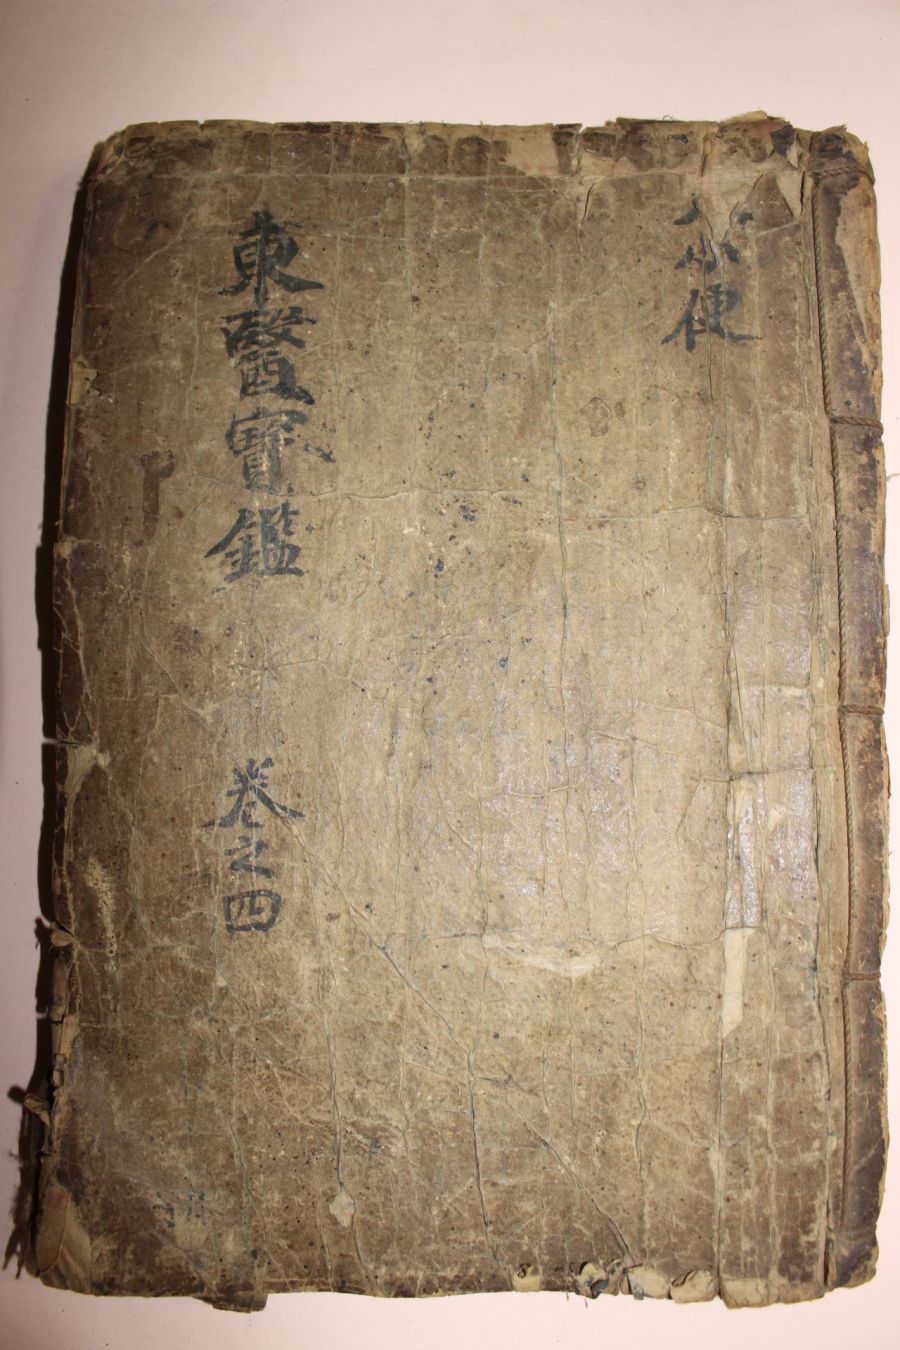 小便
東醫寶鑑
卷之四